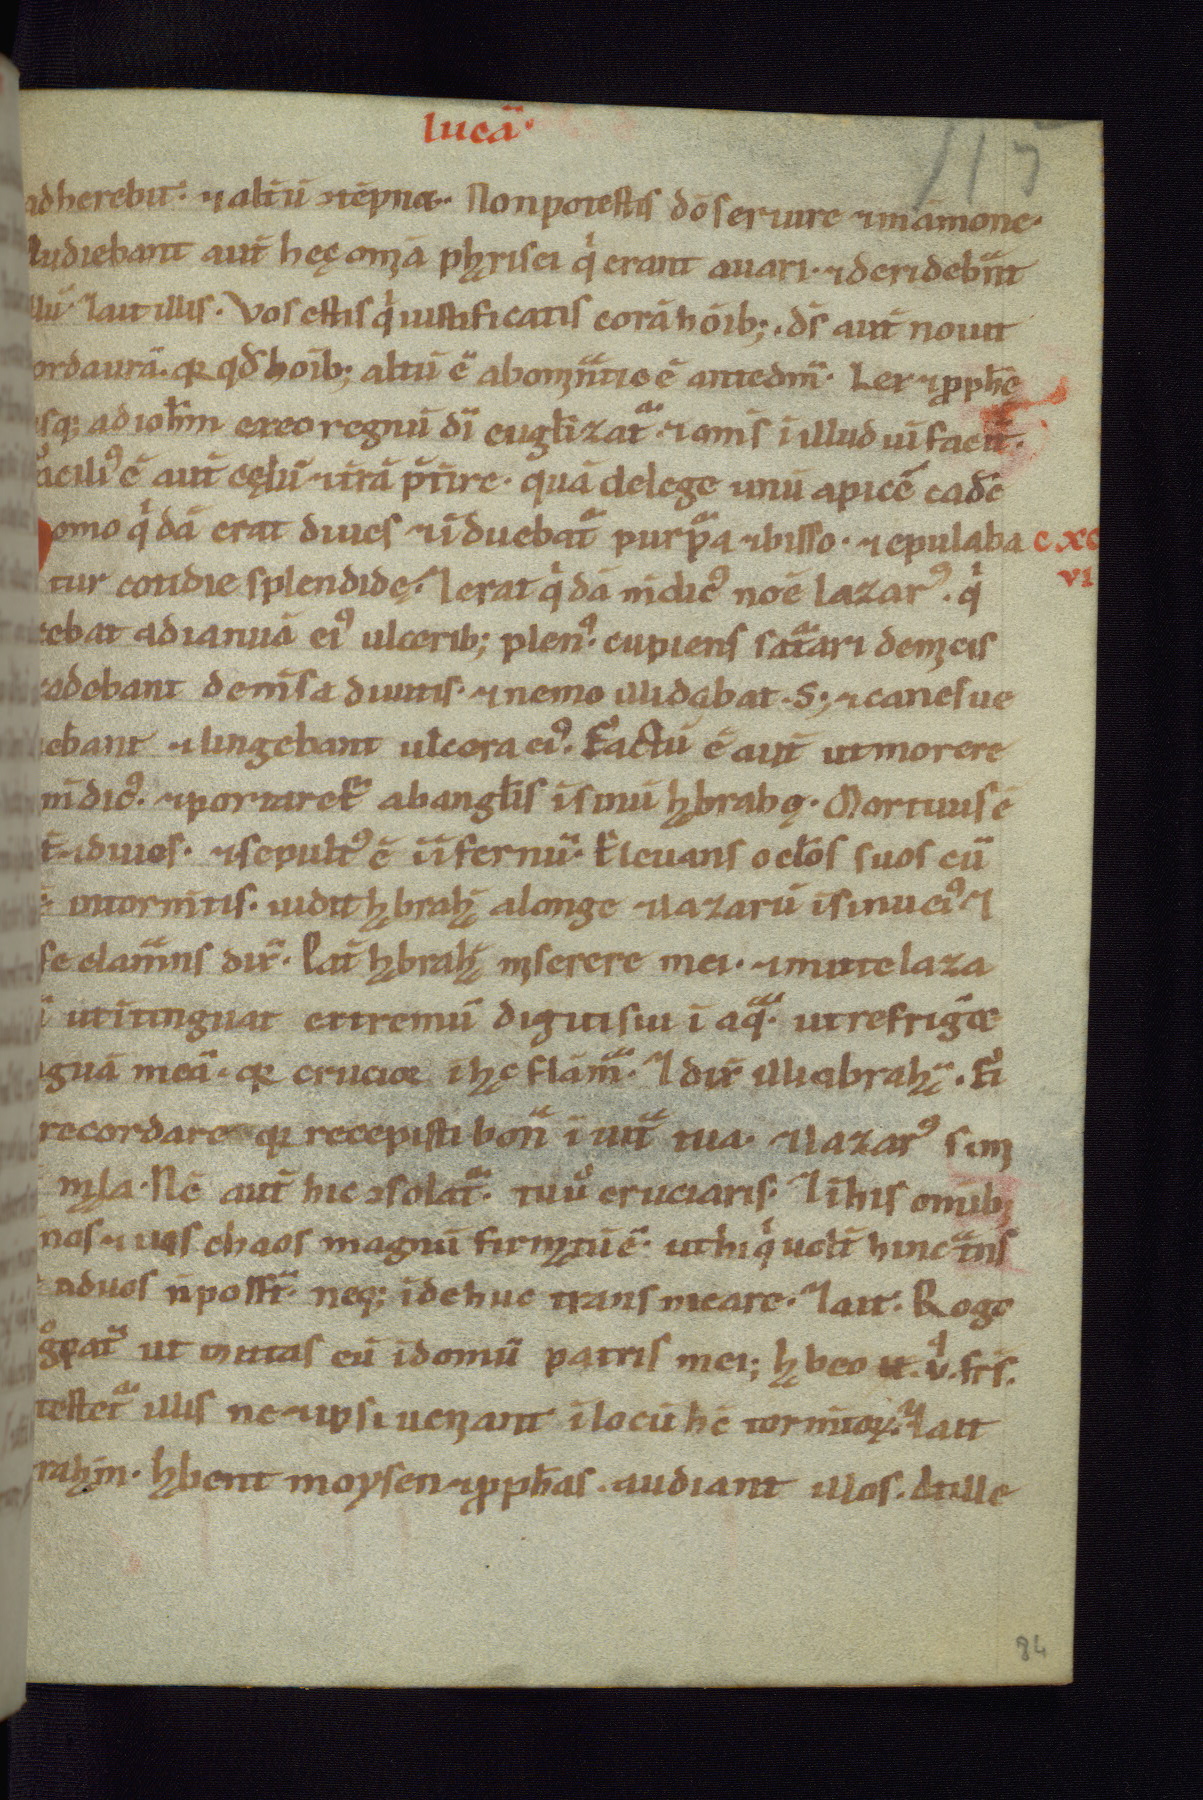 lucā·
117
adherebit· ⁊ altiū ɔtēpnet· Non potestis dō seruire ⁊ māmone·
udiebant aūt hęc om̄a pharisei qⁱ erant auari· ⁊ deridebant
illū· ⁊ ait illis· Vos estis qⁱ iustificatis corā hōib;· dš aūt nouit
corda urā· qⁱ qđ hōib; altū ē abominatio ē ante dm̄· Lex ⁊ pphe
usq; ad iohm̄ ex eo regnū dī euglizat̄· ⁊ om̄s ī illud uī facit·
facilⁱ ē aūt cęlū ⁊ trā p̄tire· quā de lege unū apicē cade
omo qⁱdā erat diues ⁊ īduebat̄ purpᵃa ⁊ bisso· ⁊ epulaba
cxc
vi
tur cotidie splendidę· ⁊ erat qⁱdā m̄dicꝰ noē lazarꝰ· qⁱ
cebat ad ianuā eiꝰ ulcerib; plenꝰ· cupiens saturari de micis
cadebant de m̄sa diuitis· ⁊ nemo illi dabat· S; ⁊ canes ue
iebant ⁊ lingebant ulcera eiꝰ· Factū ē aūt ut morere
m̄dicꝰ· ⁊ portaret̄ ab anglis ī sinū habrahę· Mortuus ē
aūt ⁊ diues· ⁊ sepultꝰ ē ī īfernū· Eleuans oclōs suos cū
ēt ī torm̄tis· uidit habrahā a longe ⁊ lazarū ī sinu eiꝰ ⁊
se clamans dix̄· Pat̄ habrahā miserere mei· ⁊ mitte laza
ut ītinguat extremū digiti sui ī aqᵃ· ut refrigēt
guā meā· qⁱ crucior ī hac flāma· ⁊ dix̄ illi abrahā· Fi
recordare qⁱ recepisti bonā ī uita tua· ⁊ lazarꝰ simi
mala· Nc̄ aūt hic ɔsolat̄· tu ū cruciaris· ⁊ ī his omīb;
nos ⁊ uos chaos magnū firmatū ē· ut hi qⁱ uolt̄ hinc tᵃns
ad uos n̄ possīt· neq; īde huc trans meare· ⁊ ait· Rogo
g° pat̄ ut mittas eū ī domū patris mei; habeo .v. frs̄·
testet̄ illis ne ⁊ ipsi ueniant ī locū hc̄ torm̄toꝝ· ⁊ ait
rahā· habent moysen ⁊ pphas· audiant illos· At ille
84